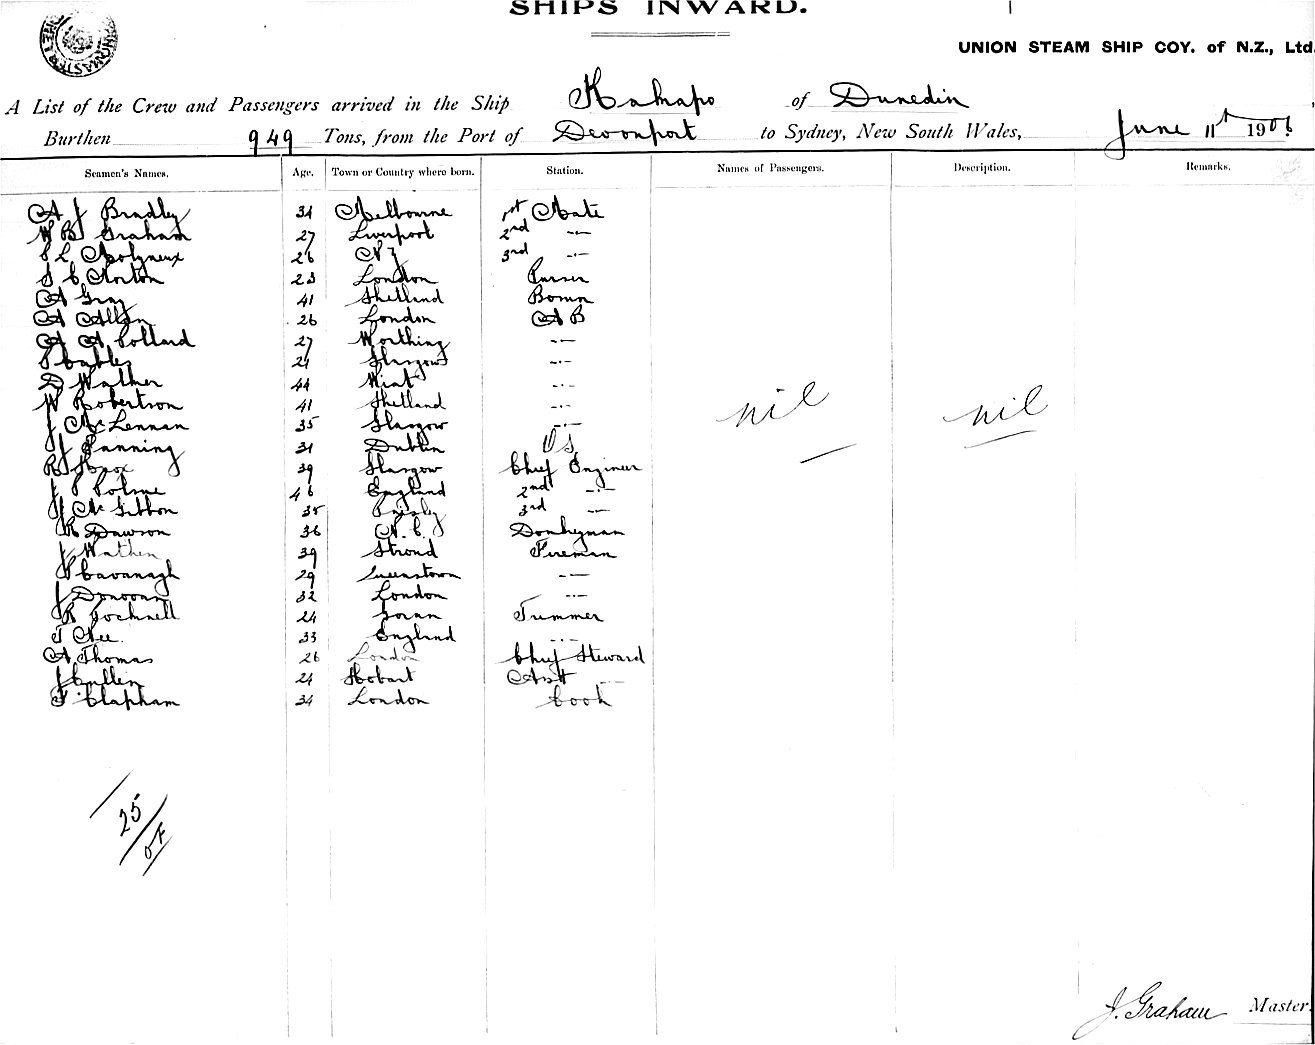 SHIPS INWARD.
UNION STEAM SHIP COY. of N.Z., Ltd.
A List of the Crew and Passengers arrived in the Ship Kakapo of Dunedin
Burthen 949 Tons, from the Port of Devonport to Sydney, New South Wales, June 11th 1906
Seamen's Names. Age. Town or Country where born. Station. Names of Passengers. Description. Remarks.
A J Bradley 34 Melbourne 1st Mate
W B Graham 27 Liverpool 2nd -"-
L Molyneux 26 N Z 3rd -"-
S C Norton 23 London Purser
A Gray 41 Shetland Bosun
A Allen 26 London A B
A A Collard 27 Worthing -"-
Cables Glasgow -"-
D Wather 44 -"-
W Robertson 41 Shetland -"-
J McLennan 35 Glasgow -"-
J Fanning 31 Dublin O S
R Knox 39 Glasgow Chief Engineer
J P 46 England 2nd -"-
J McGibbon 35 Paisley 3rd -"-
R Dawson 36 N. C. Donkeyman
J Wathen 39 Stroud Fireman
P Cavanagh 29 Queenstown -"-
J Donovan 32 London -"-
R Jocknell 24 Govan Trimmer
T Nee. 33 England -"-
A Thomas 26 London Chief Steward
J Cullen 24 Hobart Asst -"-
F. Clapham 34 London Cook
nil nil
25
J. Graham Master.